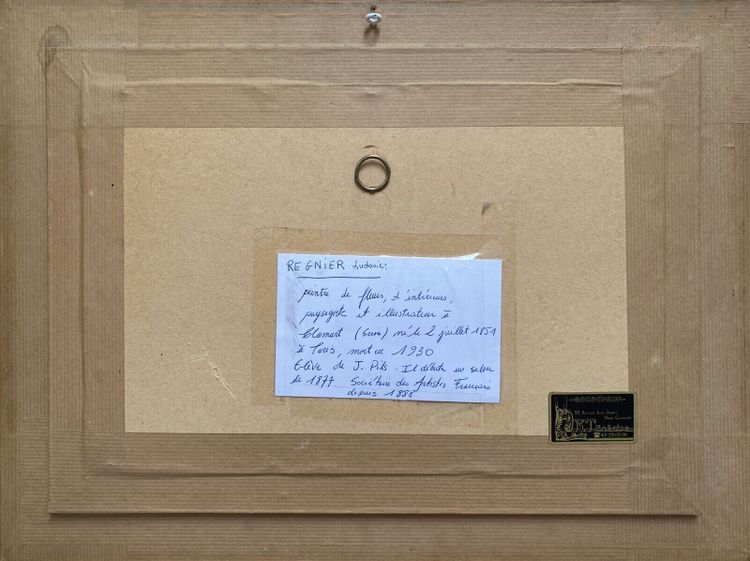 REGNIER Ludovic.
peintre de fleurs, d'intérieurs,
paysagiste et illustrateur à
Clamart (Seine) né le 2 juillet 1851
à Paris, mort en 1930
Elève de J. Pils. Il débuta au salon
de 1877 Sociétaire des Artistes Français
depuis 1886
ENCADREUR